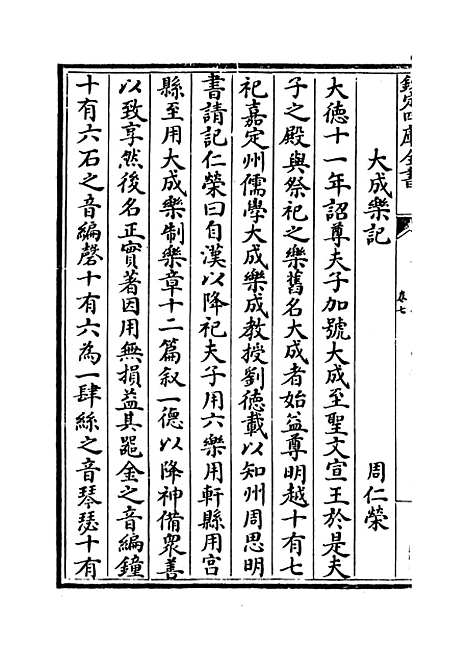 欽定四庫全書
卷七
大成樂記
周仁榮
大德十一年詔尊夫子加號大成至聖文宣王於是夫
子之殿與祭祀之樂舊名大成者始益尊明越十有七
祀嘉定州儒學大成樂成教授劉德載以知州周思明
書請記仁榮曰自漢以降祀夫子用六樂用軒縣用宮
縣至用大成樂制樂章十二篇叙一德以降神備衆善
以致享然後名正實著因用無損益其噐金之音編鐘
十有六石之音編磬十有六為一肆絲之音琴瑟十有